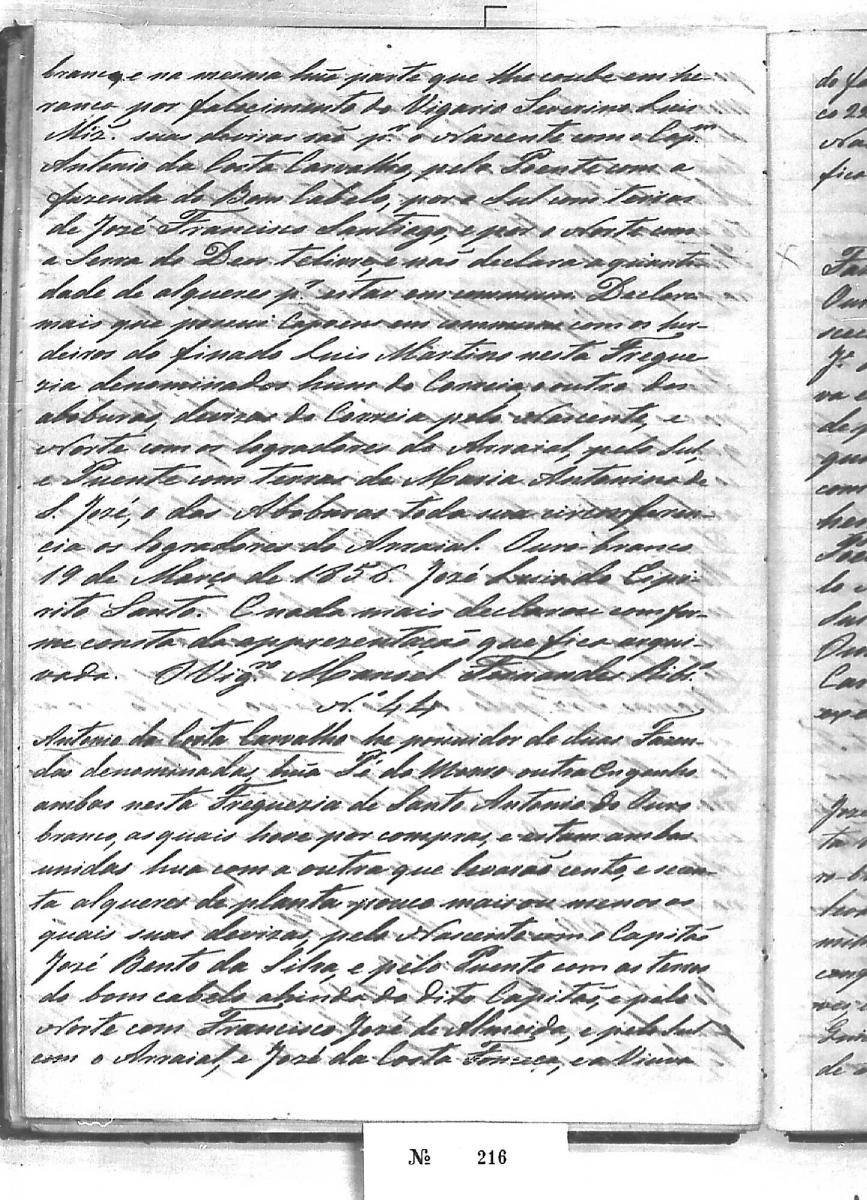 branco, e na mesma hũa parte que lhe coube em he-
rança por falecimento do Vigario Severino Luis
Miz.ª suas devizas são p.ª o Nascente com o Cap.am
Antonio da Costa Carvalho, pelo Poente com a
fazenda do Bom Cabelo, por o Sul com terras
de José Francisco Santiago, e por o Norte com
a Serra do Deus te livre, e não declara a quanti-
dade de alqueres p.r estar em commum. Declara
mais que possui Capoens em commum com os her-
deiros do finado Luis Martins nesta Fregue-
zia denominados hum do Correia, e outro das
aboburas, devizas do Correia pelo Nascente, e
Norte com os logradores do Arraial, pelo Sul,
e Puente com terras de Maria Antonina de
S. José, o das Aboboras toda sua circunferen-
cia os logradores do Arraial. Ouro branco
19 de Março de 1856. José Luis do Espi-
rito Santo. E nada mais declarou confor-
me consta da apprezentação que fica arqui-
vada. O Vig.ro Manoel Fernandes Rib.º
N.º 44
Antonio da Costa Carvalho he possuidor de duas Fazen-
das denominadas, hũa Pé do Morro outra Engenho
ambas nesta Freguezia de Santo Antonio do Ouro
branco, as quais hove por compras, e estam ambas
unidas hua com a outra que levarão cento, e secen-
ta alqueres de planta pouco mais ou menos os
quais suas devizas, pelo Nascente com o Capitão
José Bento da Silva e pelo Puente com as terras
do bom cabelo ahinda do dito Capitão, e pelo
Norte com Francisco José de Almeida, e pelo Sul
com o Arraial, e José da Costa Fonseca, e a Viuva
Nº 216